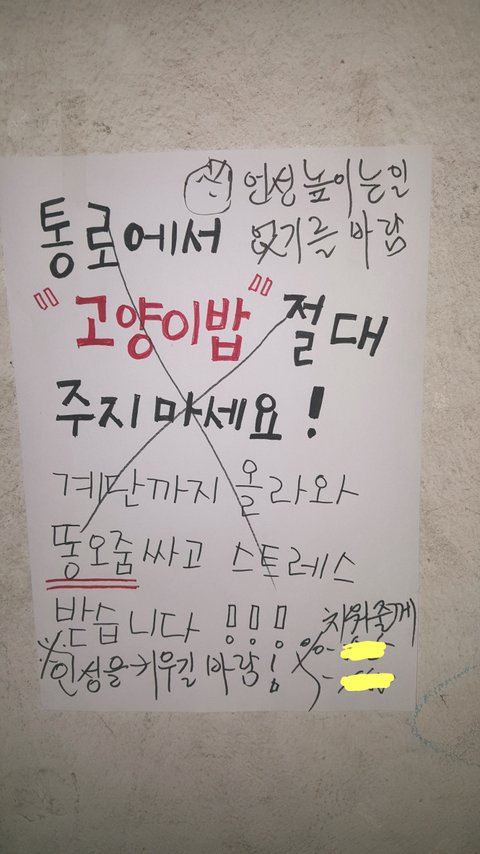 인성 높이는 일
없기를 바람
통로에서
"고양이밥" 절대
주지 마세요!
계단까지 올라와
똥오줌 싸고 스트레스
받습니다 !!!
치워줄게
※인성을 키우길 바람!